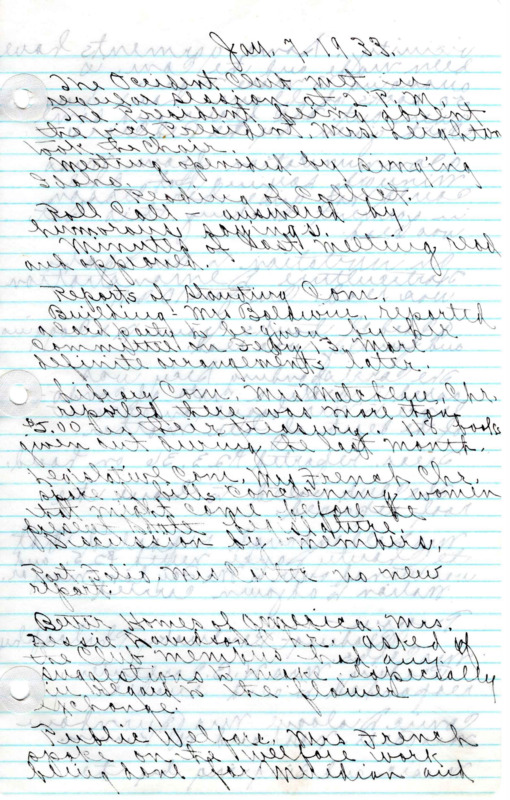 Jan. 7, 1933.
The Occident Club met in
regular session at 2 P.M.
The President being absent
the vice President Mrs. Leighton
took the Chair.
Meeting opened by singing
Song.
Reading of Collect.
Roll Call - answered by
humorous sayings.
Minutes of last meeting read
and approved.
Reports of Standing Com.
Building - Mrs Baldwin, reported
a card party to be given by her
committee on Feby 13. More
definite arrangements later.
Library Com. Mrs Chr.
reported there was more than
5.00 in their treasury. books
given out during the last month.
Legislative Com. Mrs French Chr.
spoke bills concerning women
that might come before the
present State legislature.
Discussion by members.
Port Folio, Mrs no new
report.
Better Homes of America, Mrs.
Bessie Davidson Chr. asked if
the Club members had any
suggestions to make especially
in regard to the flower
exchange.
Public Welfare, Mrs French
spoke on the welfare work
being done for Meridian and